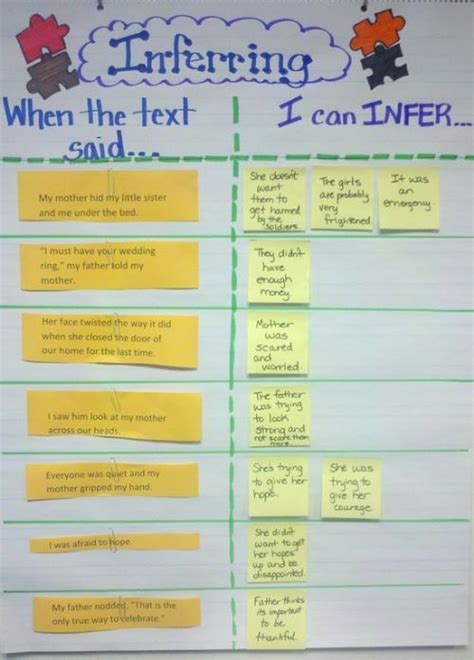 Inferring
When the text
said...
I can INFER...
My mother hid my little sister
and me under the bed.
She doesn't
want
them to
get harmed
by the
soldiers.
The girls
are probably
very
frightened.
It was
an
emergency
"I must have your wedding
ring," my father told my
mother.
They didn't
have
enough
money
Her face twisted the way it did
when she closed the door of
our home for the last time.
Mother
was
scared
and
worried.
I saw him look at my mother
across our heads.
The father
was trying
to look
strong and
not scare them
more.
Everyone was quiet and my
mother gripped my hand.
She's trying
to give her
hope.
She was
trying to
give her
courage.
I was afraid to hope.
She didn't
want to get
her hopes
up and be
disappointed.
My father nodded, "That is the
only true way to celebrate."
Father thinks
its important
to be
thankful.